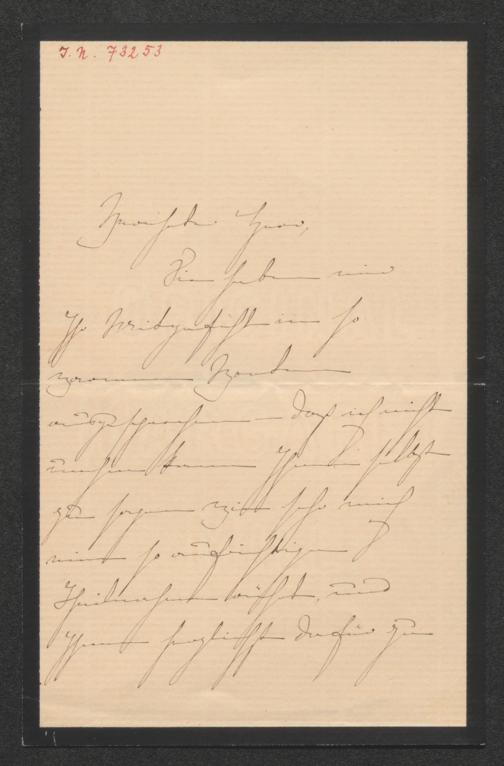 J. N. 73253
Verehrter Herr,
Sie haben mir
Ihr Mitgefühl in so
warmen Worten
ausgesprochen – daß ich nicht
umhin kann Ihnen selbst
zu sagen wie sehr mich
eine so aufrichtige
Theilnahme rührt, und
Ihnen herzlichst dafür zu